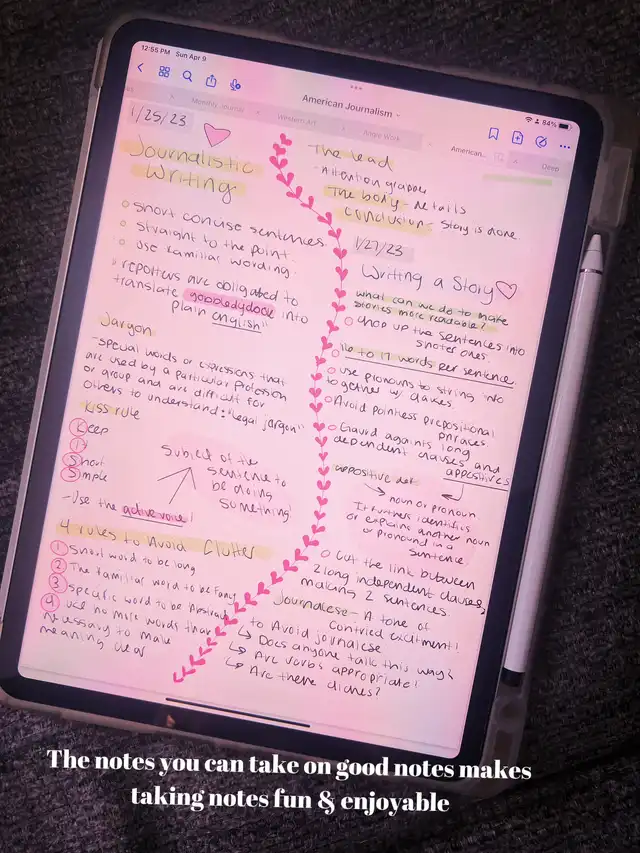 12:55 PM Sun Apr 9
84%
American Journalism
Monthly Journal
Western Art
American...
Deep
1/25/23
Journalistic
Writing
short concise sentences
straight to the point.
use familiar wording.
"reporters are obligated to
translate gobbledygook into
plain english"
Jargon
- special words or expressions that
are used by a particular profession
or group and are difficult for
others to understand: "legal jargon"
Kiss rule
Keep
It
Short
Simple
Subject of the
sentence to
be doing
something!
- Use the active voice!
4 rules to Avoid Clutter
1 Short word to be long
2 The familiar word to be Fancy
3 Specific word to be Abstract
4 use no more words than
necessary to make
meaning clear
The lead
- Attention grabber
The body - details
Conclusion - Story is done.
1/27/23
Writing a Story
what can we do to make
stories more readable?
chop up the sentences into
shorter ones.
16 to 17 words per sentence
use pronouns to string into
together w/ clauses.
Avoid pointless prepositional
phrases.
Gaurd againts long
dependent clauses and
appositives
appositive def.
noun or pronoun
It furthers identifies
or explains another noun
or pronound in a
sentence.
cut the link between
2 long independent clauses,
making 2 sentences.
Journalese - A tone of
contried excitment!
to Avoid journalese
↳ Does anyone talk this way?
↳ Are verbs appropriate!
↳ Are there cliches?
The notes you can take on good notes makes
taking notes fun & enjoyable